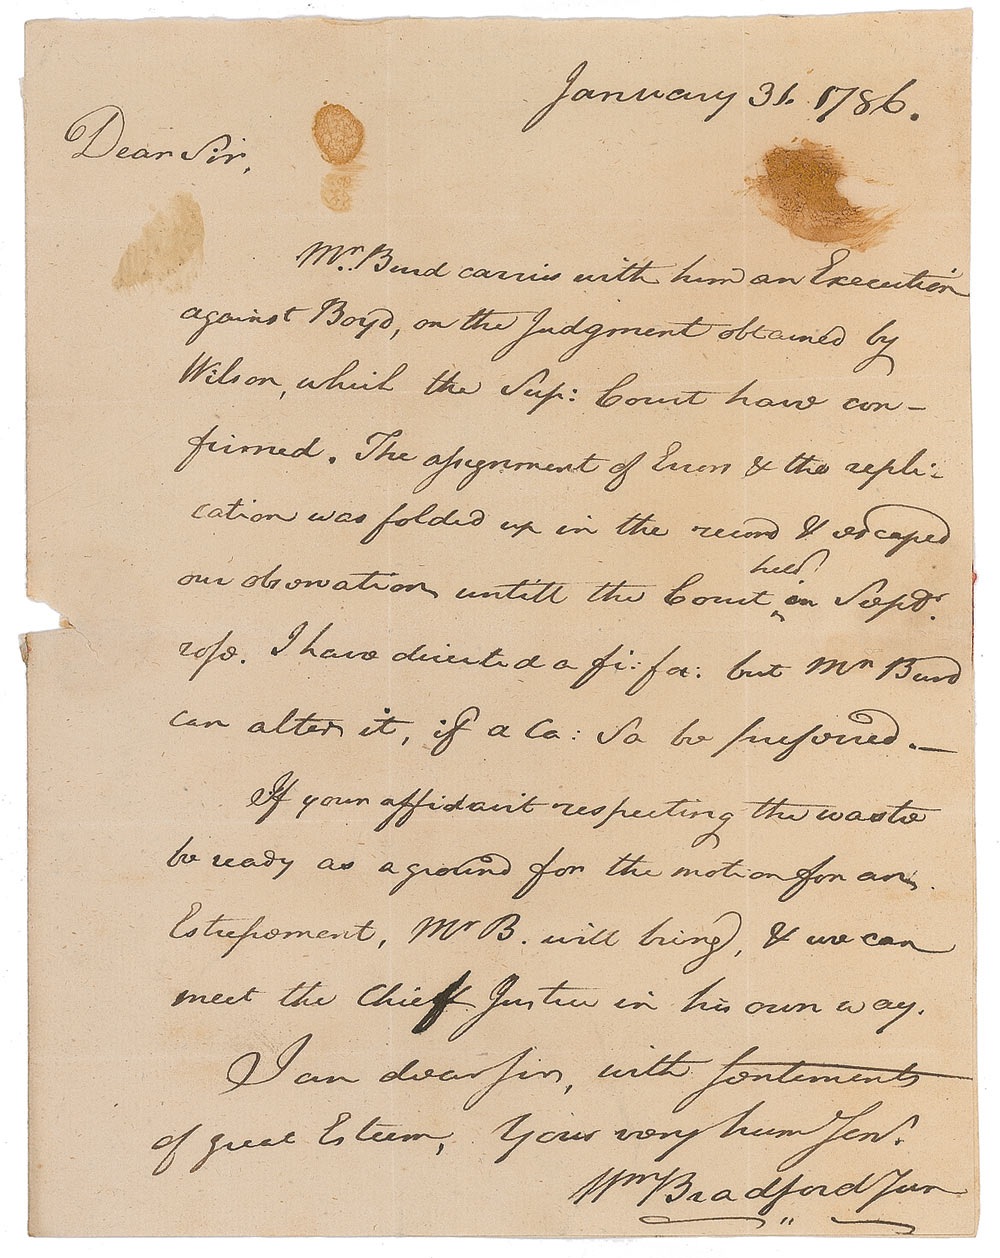 January 31. 1786.
Dear Sir,
Mr. Burd carries with him an Execution
against Boyd, on the Judgment obtained by
Wilson, which the Sup: Court have con-
firmed. The assignment of Errors & the repli-
cation was folded up in the record & escaped
our observation untill the Court held in Sept.r
rose. I have directed a fi: fa: but Mr Burd
can alter it, if a Ca: Sa be preferred.—
If your affidavit respecting the waste
be ready as a ground for the motion for an
Estrepement, Mr B. will bring, & we can
meet the Chief Justice in his own way.
I am dear Sir, with sentiments
of great Esteem, Your very hum Serv.t
Wm Bradford Jun